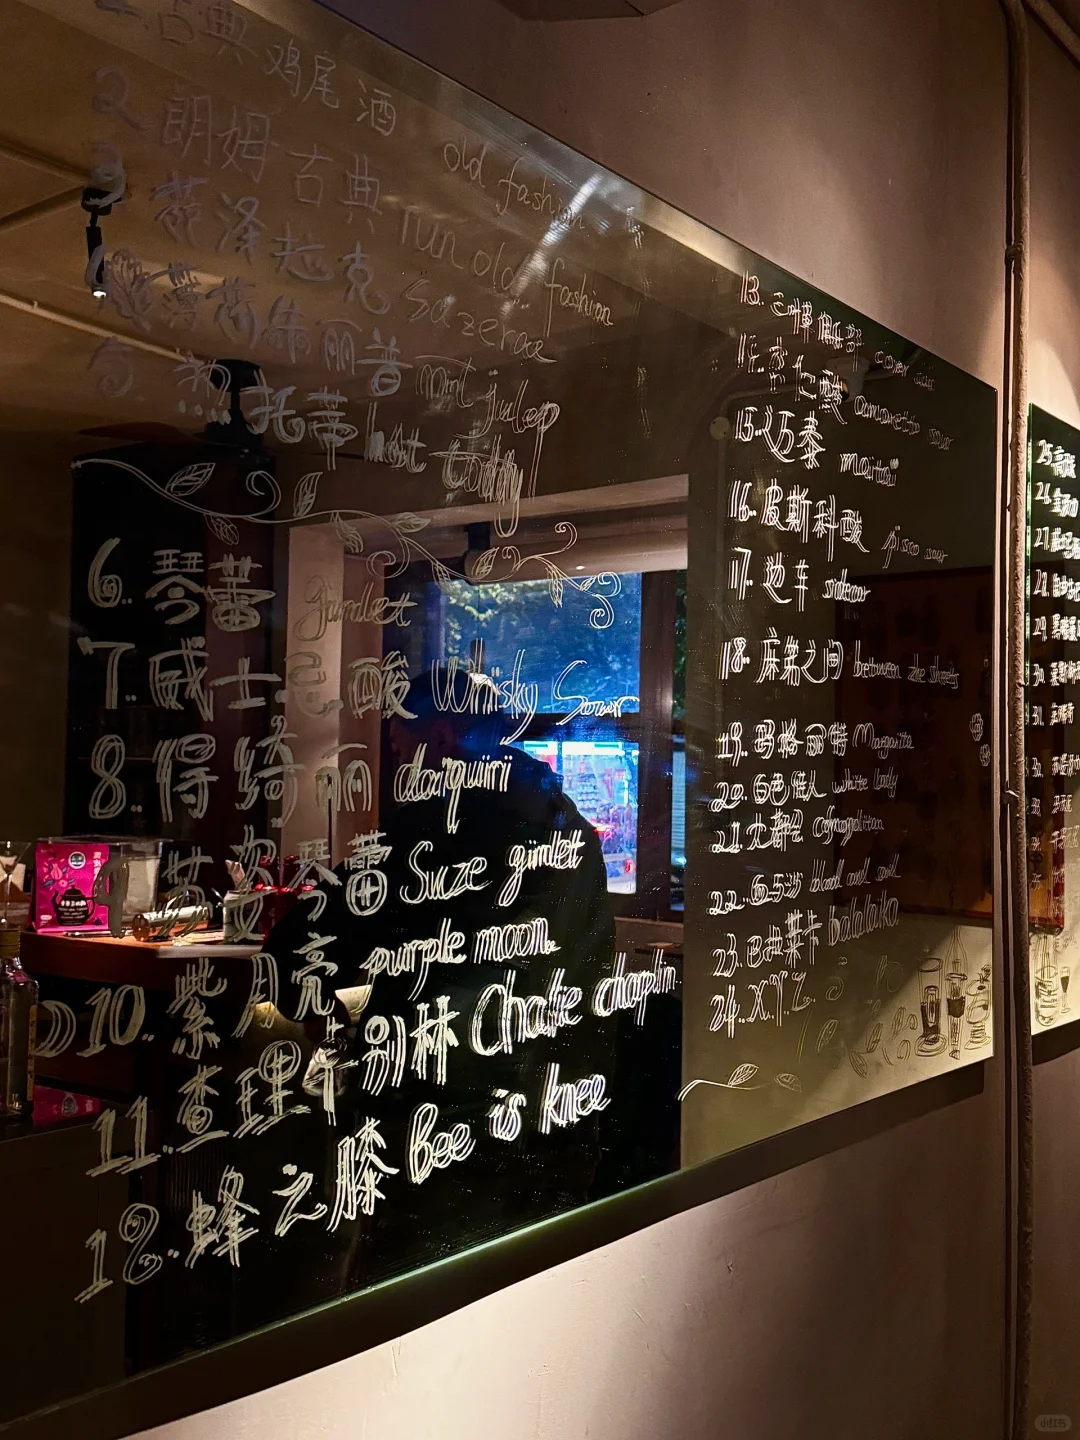 1.古典鸡尾酒 old fashion
2.朗姆古典 run old fashion
3.萨泽拉克 Sazerac
4.薄荷朱丽普 mint julep
5.热托蒂 hot toddy
6.琴蕾 gimlet
7.威士忌酸 Whisky Sour
8.得绮丽 daiquiri
9.苏姿琴蕾 Suze gimlet
10.紫月亮 purple moon
11.查理卓别林 Charlie chaplin
12.蜂之膝 Bee is knee
13.三叶草俱乐部
14.杏仁酸 amaretto sour
15.迈泰 maitai
16.皮斯科酸 pisco sour
17.边车 sidecar
18.床第之间 between the sheets
19.玛格丽特 Margarita
20.白色佳人 white lady
21.大都会 cosmopolitan
22.血与沙 blood and
23.巴拉莱卡 balalaika
24.XYZ
25.
26.
27.
28.
29.
30.
31.